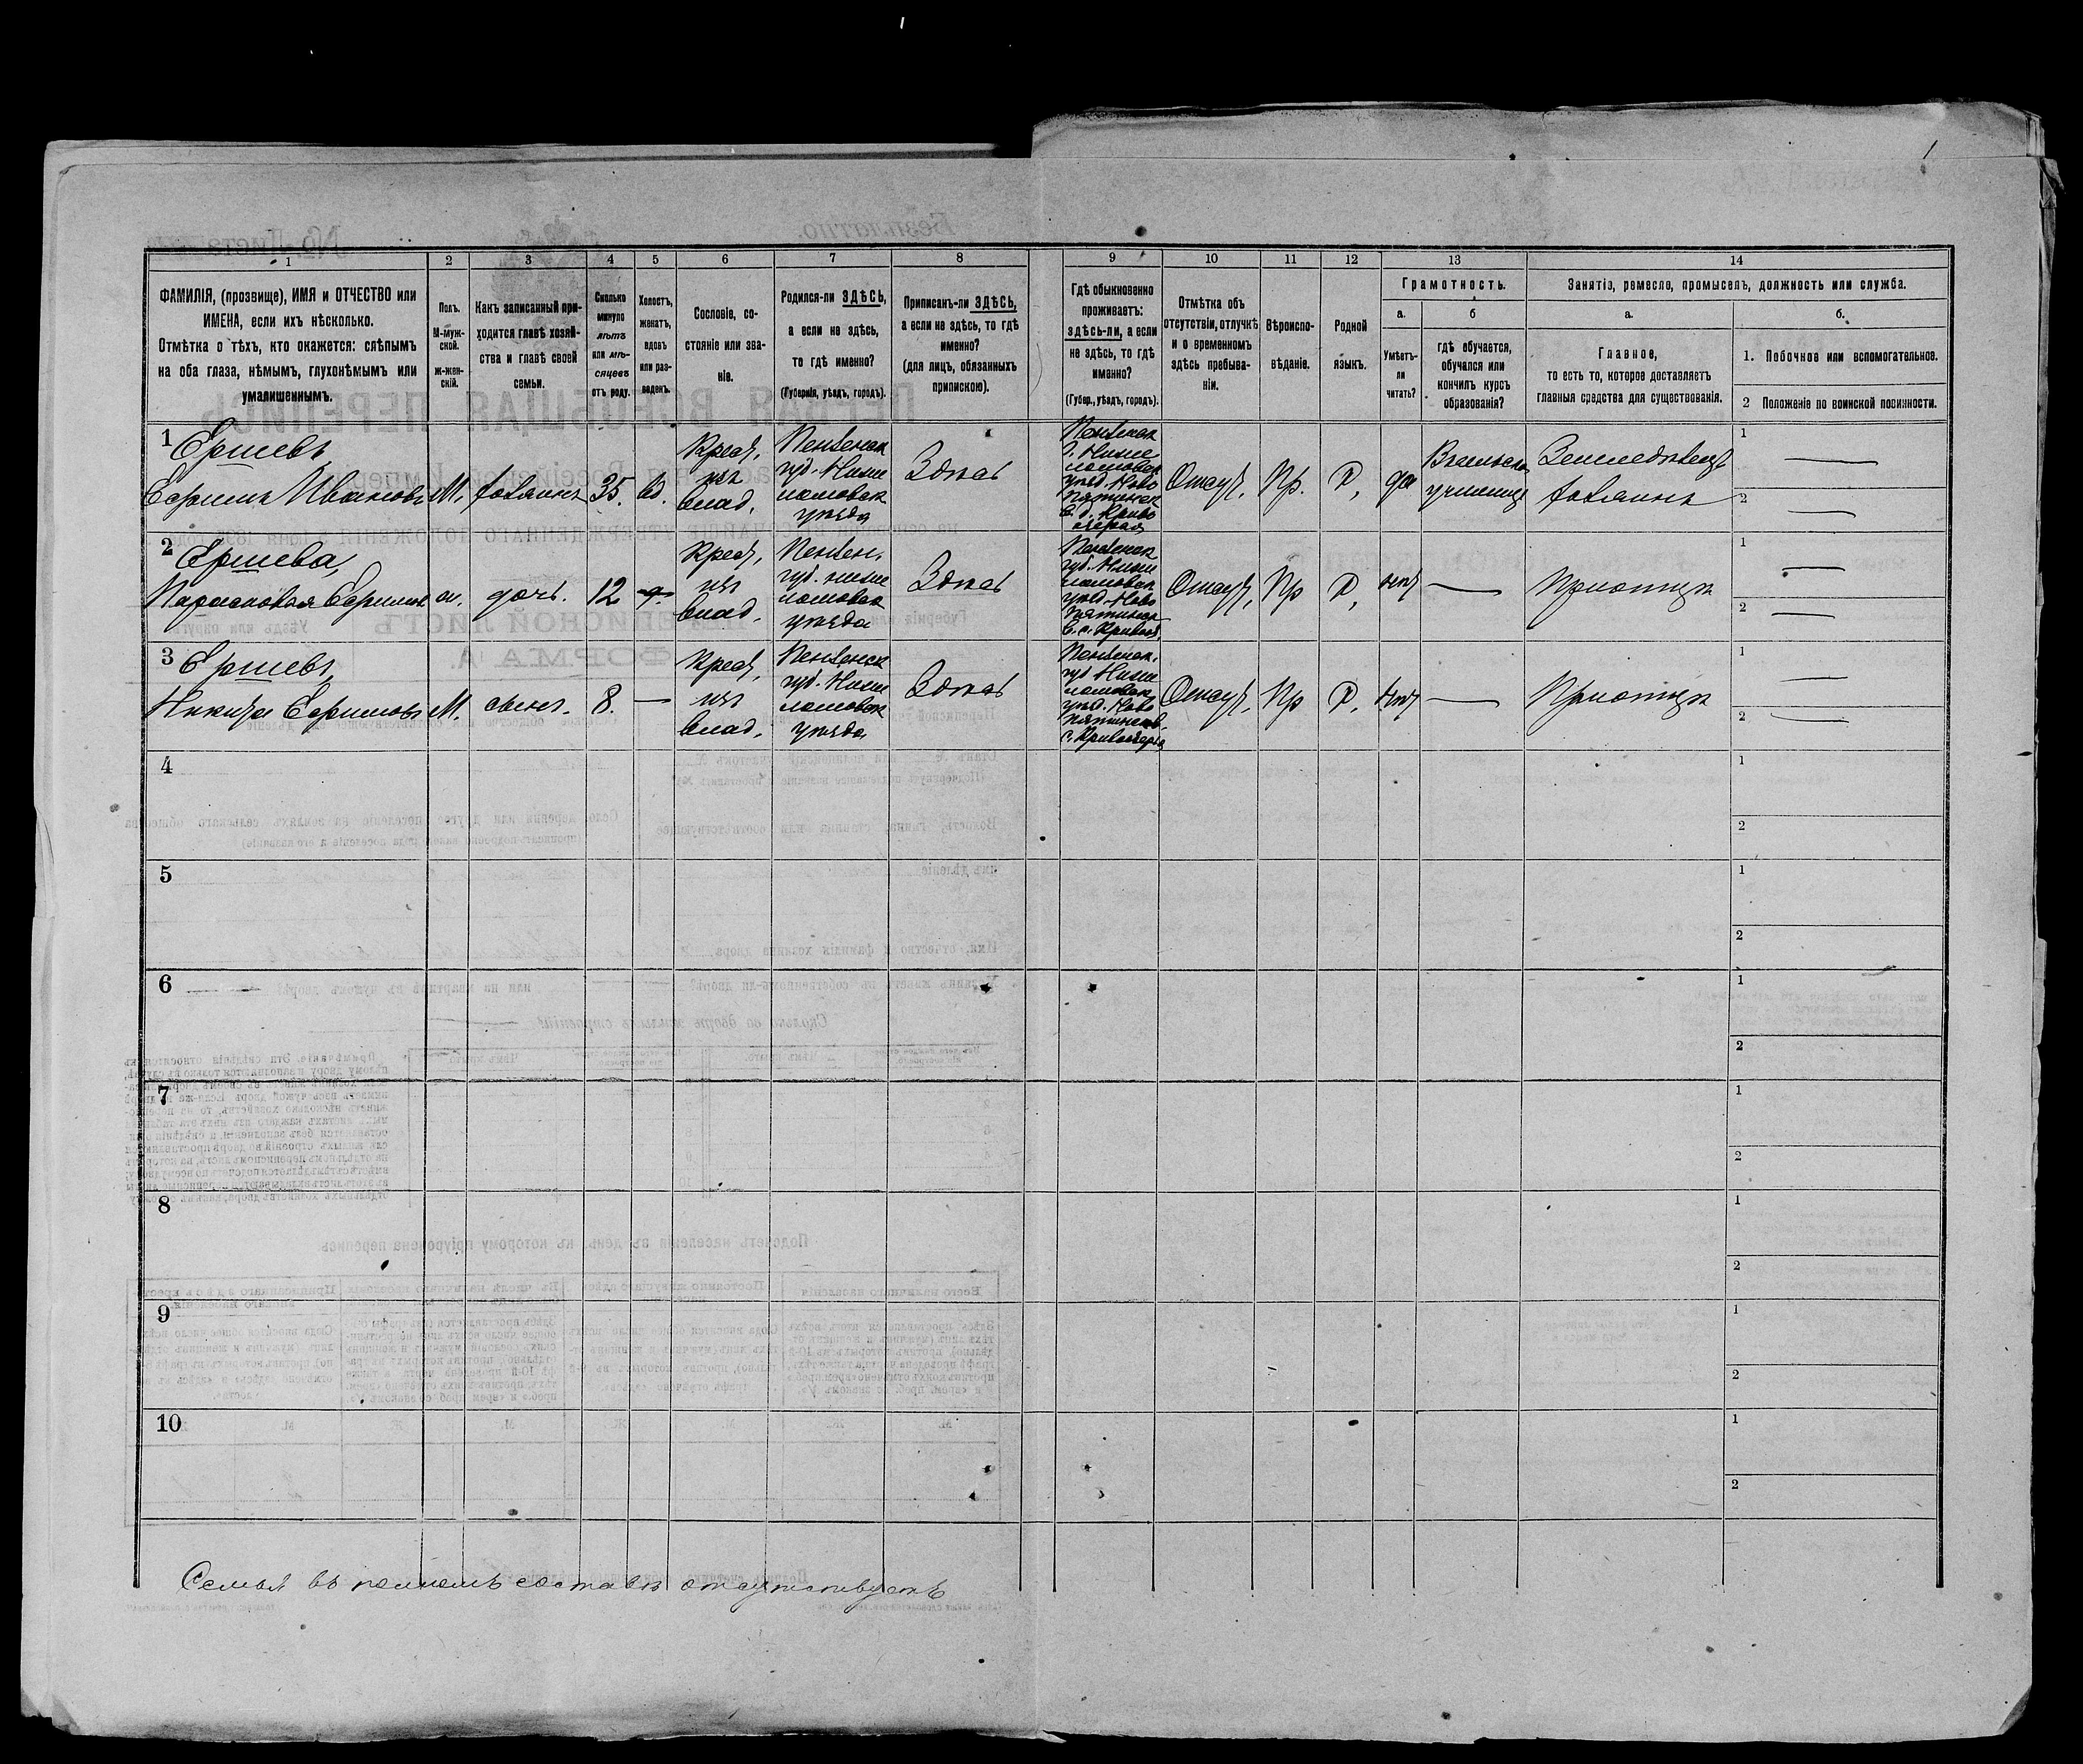 1
1
2
3
4
5
6
7
8
9
10
11
12
13
14
ФАМИЛІЯ, (прозвище), ИМЯ и ОТЧЕСТВО или
ИМЕНА, если ихъ нѣсколько.
Отмѣтка о тѣхъ, кто окажется: слѣпымъ
на оба глаза, нѣмымъ, глухонѣмымъ или
умалишеннымъ.
Полъ.
М-муж-
ской.
ж-жен-
скій.
Какъ записанный при-
ходится главѣ хозяй-
ства и главѣ своей
семьи.
Сколько
минуло
лѣтъ
или мѣ-
сяцевъ
отъ роду.
Холостъ,
женатъ,
вдовъ
или раз-
веденъ.
Сословіе, со-
стояніе или зва-
ніе.
Родился-ли ЗДѢСЬ,
а если не здѣсь,
то гдѣ именно?
(Губернія, уѣздъ, городъ).
Приписанъ-ли ЗДѢСЬ,
а если не здѣсь, то гдѣ
именно?
(для лицъ, обязанныхъ
припискою).
Гдѣ обыкновенно
проживаетъ:
здѣсь-ли, а если
не здѣсь, то гдѣ
именно?
(Губер., уѣздъ, городъ).
Отмѣтка объ
отсутствіи, отлучкѣ
и о временномъ
здѣсь пребыва-
ніи.
Вѣроиспо-
вѣданіе.
Родной
языкъ.
Грамотность.
а.
Умѣетъ-
ли
читать?
б
гдѣ обучается,
обучался или
кончилъ курсъ
образованія?
Занятіе, ремесло, промыселъ, должность или служба.
а.
Главное,
то есть то, которое доставляетъ
главныя средства для существованія.
б.
1. Побочное или вспомогательное.
2 Положеніе по воинской повинности.
1 Ершевъ
Ефримъ Ивановъ
М.
хозяинъ
35.
вд.
Крест,
изъ
влад.
Пензенск
губ. Ниже
ломовск
уѣзда
Здѣсь
Пензенск
г. Ниже
ломовск
уѣзд. Ново
пятинск
в. д. Криво
озерья
Отсут.
Пр.
Р,
да
В сельск
училищѣ
Земледѣлец
хозяинъ
1
2
2 Ершева,
Парасковья Ефримов
ж.
дочь.
12
Крест,
изъ
влад.
Пензен.
губ. ниже
ломовск
уѣзда
Здѣсь
Пензенск
губ. Ниже
ломовск
уѣзд. Ново
пятинск
в. с. Кривоз.
Отсут,
Пр
Р,
нет
при отцѣ
1
2
3 Ершевъ,
Никита Ефримовъ
М.
сынъ.
8.
Крест,
изъ
влад.
Пензенск
губ. Ниже
ломовск
уѣзда
Здѣсь
Пензенск.
губ Ниже
ломовск
уѣзд. Ново
пятинск в.
с. Кривозерья
Отсут.
Пр
Р.
нет
при отцѣ
1
2
4
1
2
5
1
2
6
1
2
7
1
2
8
1
2
9
1
2
10
1
2
Семья въ полномъ составѣ отсутствуетъ